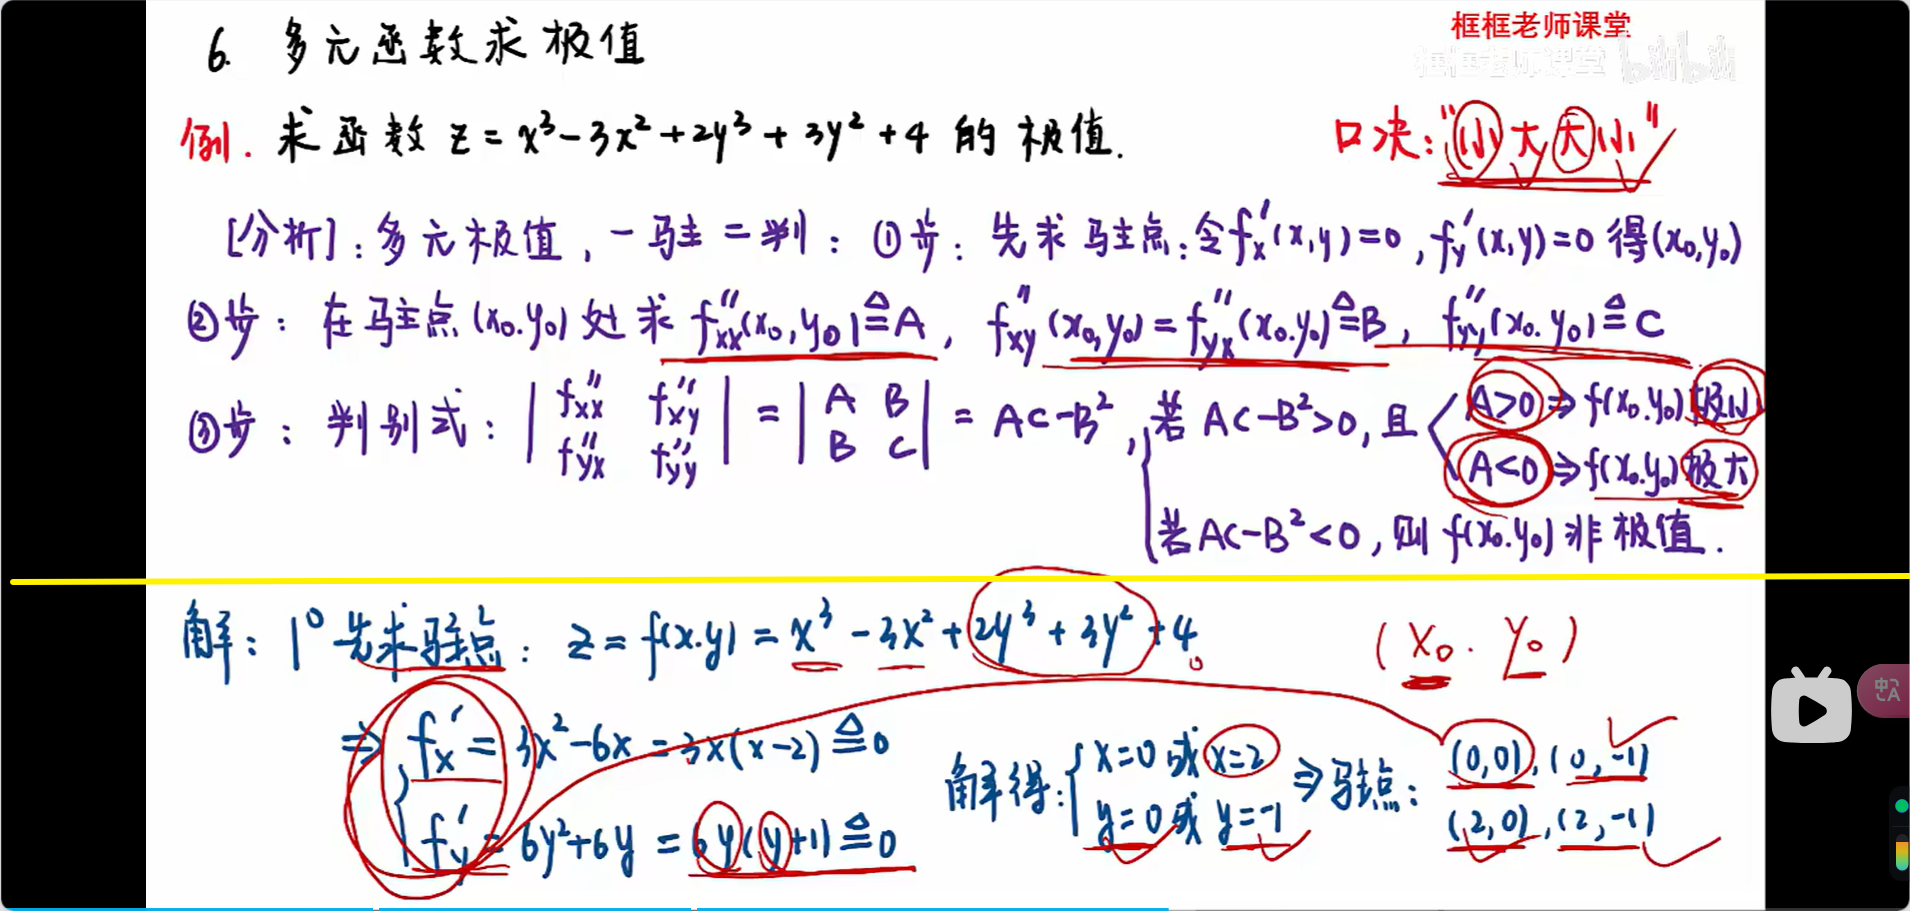 框框老师课堂
框框老师课堂 bilibili
6. 多元函数求极值
例. 求函数 z = x³-3x²+2y³+3y²+4 的极值.
口决:"小大大小"
[分析]: 多元极值, 一驻二判: ①步: 先求驻点: 令fₓ'(x,y)=0, f_y'(x,y)=0 得(x₀,y₀)
②步: 在驻点(x₀.y₀)处求 f_xx''(x₀,y₀)≜A, f_xy''(x₀,y₀)=f_yx''(x₀.y₀)≜B, f_yy''(x₀.y₀)≜C
③步: 判别式: |f_xx'' f_xy''; f_yx'' f_yy''| = |A B; B C| = AC-B², { 若 AC-B²>0, 且 < A>0 ⇒ f(x₀.y₀)极小
A<0 ⇒ f(x₀.y₀)极大
若AC-B²<0, 则 f(x₀.y₀)非极值.
解: 1° 先求驻点: z = f(x.y) = x³-3x²+2y³+3y²+4
(x₀. y₀)
⇒ { fₓ' = 3x²-6x = 3x(x-2) ≜ 0
f_y' = 6y²+6y = 6y(y+1) ≜ 0
解得: { x=0 或 x=2
y=0 或 y=-1
⇒ 驻点: (0,0), (0,-1)
(2,0), (2,-1)
中A